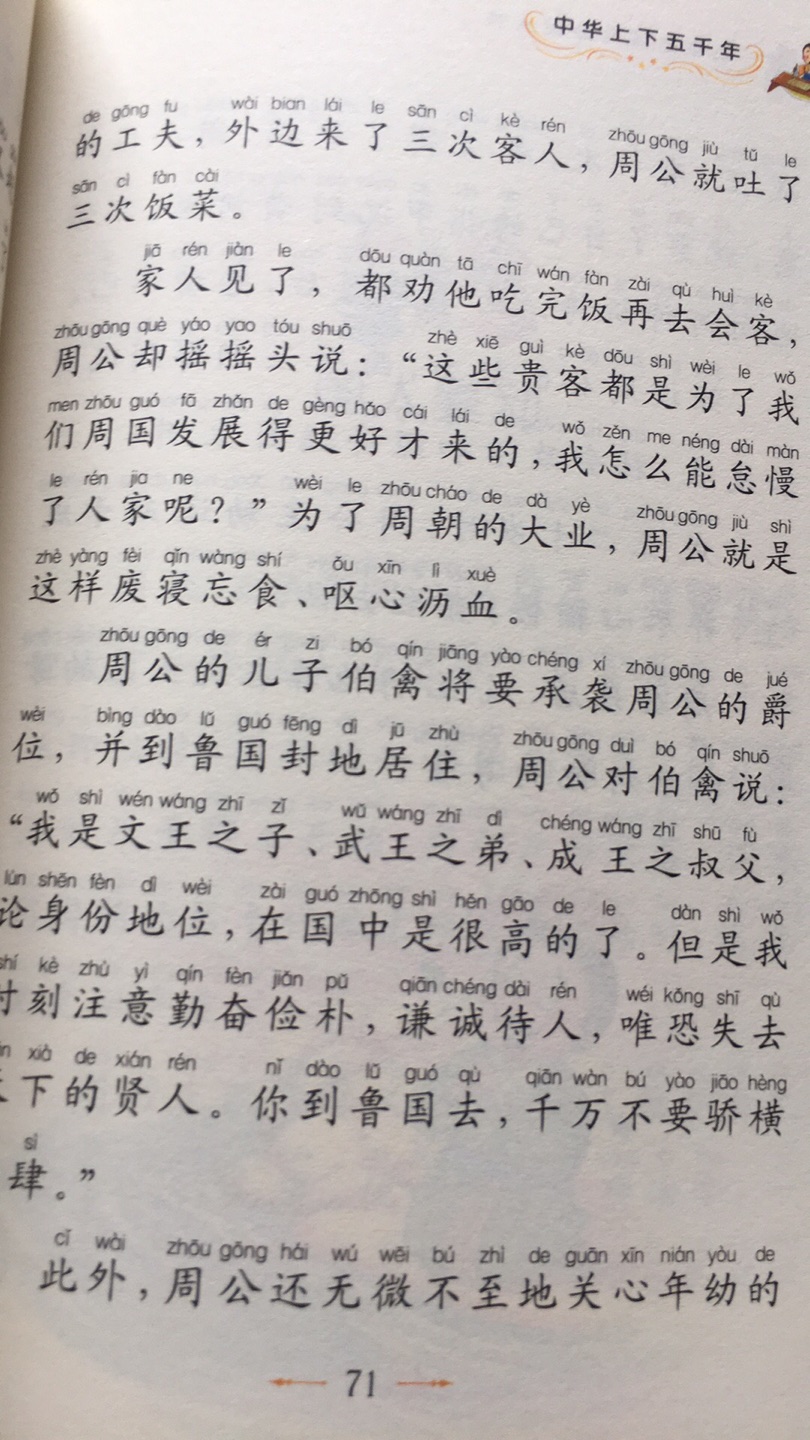 中华上下五千年
de gōng fu wài bian lái le sān cì kè rén zhōu gōng jiù tǔ le
的工夫，外边来了三次客人，周公就吐了
sān cì fàn cài
三次饭菜。
jiā rén jiàn le dōu quàn tā chī wán fàn zài qù huì kè
家人见了，都劝他吃完饭再去会客，
zhōu gōng què yáo yao tóu shuō zhè xiē guì kè dōu shì wèi le wǒ
周公却摇摇头说：“这些贵客都是为了我
men zhōu guó fā zhǎn de gèng hǎo cái lái de wǒ zěn me néng dài màn
们周国发展得更好才来的，我怎么能怠慢
le rén jia ne wèi le zhōu cháo de dà yè zhōu gōng jiù shì
了人家呢？”为了周朝的大业，周公就是
zhè yàng fèi qǐn wàng shí ǒu xīn lì xuè
这样废寝忘食、呕心沥血。
zhōu gōng de ér zi bó qín jiāng yào chéng xí zhōu gōng de jué
周公的儿子伯禽将要承袭周公的爵
wèi bìng dào lǔ guó fēng dì jū zhù zhōu gōng duì bó qín shuō
位，并到鲁国封地居住，周公对伯禽说：
wǒ shì wén wáng zhī zǐ wǔ wáng zhī dì chéng wáng zhī shū fù
“我是文王之子、武王之弟、成王之叔父，
lùn shēn fèn dì wèi zài guó zhōng shì hěn gāo de le dàn shì wǒ
论身份地位，在国中是很高的了。但是我
shí kè zhù yì qín fèn jiǎn pǔ qiān chéng dài rén wéi kǒng shī qù
时刻注意勤奋俭朴，谦诚待人，唯恐失去
xià de xián rén nǐ dào lǔ guó qù qiān wàn bú yào jiāo hèng
下的贤人。你到鲁国去，千万不要骄横
sì
肆。”
cǐ wài zhōu gōng hái wú wēi bú zhì de guān xīn nián yòu de
此外，周公还无微不至地关心年幼的
71